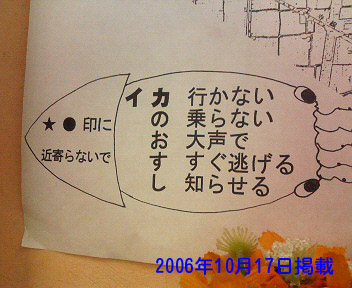 イカ 行かない
の 乗らない
お 大声で
す すぐ逃げる
し 知らせる
★ ● 印に
近寄らないで
2006年10月17日掲載